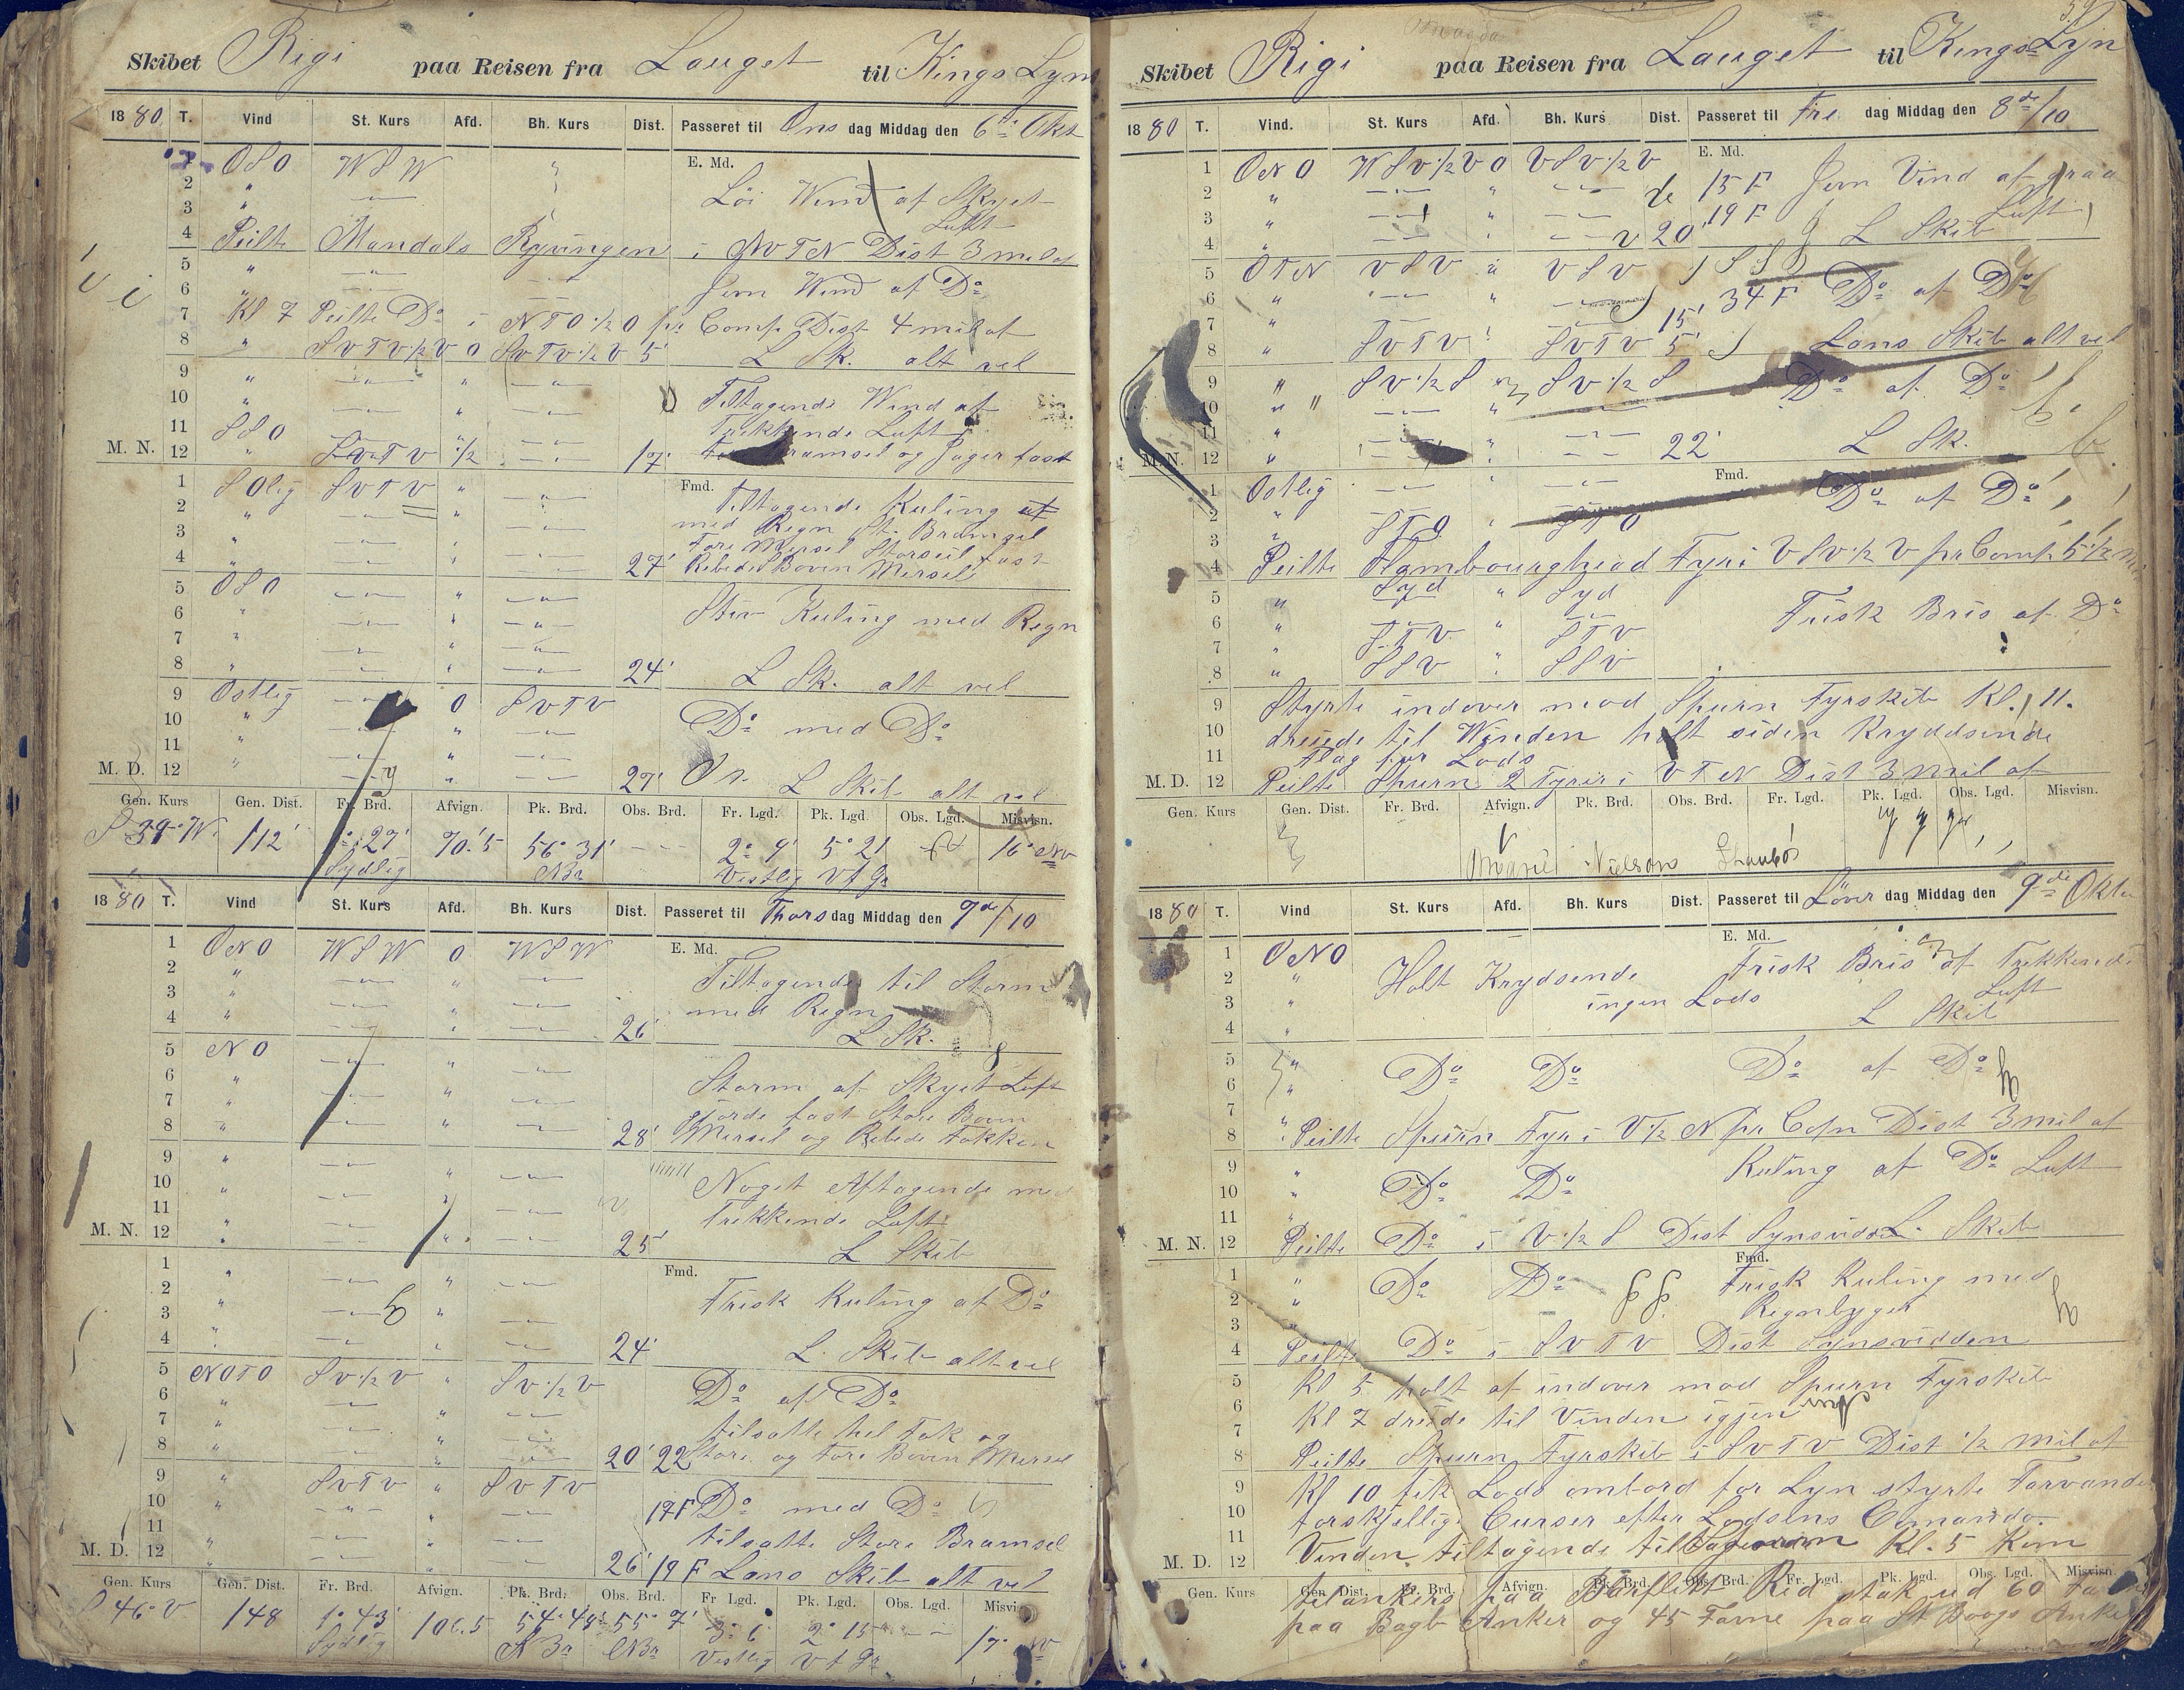 Skibet Rigi paa Reisen fra Lauget til Kings Lynn
1880 T. Vind St. Kurs Afd. Bh. Kurs Dist. Passeret til Ons dag Middag den 6te Okt
E. Md.
1 OSO WSW "
2 " — " — Löi Wind af Skyet
3 " Luft
4 Peilte Mandals Ryvingen i NVTN Dist 3 mil af
5 " — " — — " —
6 " — " — Jevn Wind af Do
7 Kl 7 Peilte Do i NTO 1/2 O pr Comp Dist 4 mil af
8 " SVTV 1/2 V O SVTV 1/2 V 5' L Sk. alt vel
9 " — " — " — " —
10 " — " — " — " — Tiltagende Wind af
11 SSO — " — — " — Trekkende Luft
M. N. 12 " SVTV "1/2 — " — 17' Bramsel og Jager fast
Fmd.
1 SOlig SVTV " — " — Tiltagende Kuling af
2 " — " — " — " — med Regn St. Bramsel
3 " — " — " — " — Fore Mersel Storseil fast
4 " — " — " — " — 27' Rebede Boven Mersel
5 OSO — " — " — " —
6 " — " — " — " — Stiv Kuling med Regn
7 " — " — " — " —
8 " — " — " — " — 24' L Sk. alt vel
9 Ostlig — " — O SVTV
10 " " — " — Do med Do
11 " " — " —
M. D. 12 " — " — " — " — 27' L Skib alt vel
Gen. Kurs Gen. Dist. Fr. Brd. Afvign. Pk. Brd. Obs. Brd. Fr. Lgd. Pk. Lgd. Obs. Lgd. Misvisn.
S 39° W. 112' 1° 27' 70'.5 56° 31' — — 2° 9' 5° 21 16° NV
Sydlig NBr Vestlig Vt Gr
1880 T. Vind St. Kurs Afd. Bh. Kurs Dist. Passeret til Thors dag Middag den 7de/10
E. Md.
1 ONO WSW O WSW
2 " — " — " — " — Tiltagende til Storm
3 " — " — " — " — med Regn
4 " — " — " — " — 26' L Sk.
5 NO — " — " — " —
6 " — " — " — " — Storm af Skyet Luft
7 " — " — " — " — gjorde fast Store Boven
8 " — " — " — " — 28' Mersel og Rebede Fokken
9 " — " — " — " —
10 " — " — — " — Noget Aftagende med
11 " — " — — " — Trekkende Luft
M. N. 12 " — " — " — " — 25' L Skib
Fmd.
1 " — " — " — " —
2 " — " — " — " — Frisk Kuling af Do
3 " — " — "
4 " — " — " — " — 24' L. Skib alt vel
5 NOTO SV 1/2 V " SV 1/2 V
6 " — " — " — " — Do af Do
7 " — " — " — " — tilsatte hel Fok og
8 " — " — " — " — 20' 22 Store og Fore Boven Mersel
9 " SVTV " SVTV
10 " — " — " — " — 17 F Do med Do
11 " — " — " — " — tilsatte Store Bramsel
M. D. 12 " — " — " — " — 26' 19 F Lens Skib alt vel
Gen. Kurs Gen. Dist. Fr. Brd. Afvign. Pk. Brd. Obs. Brd. Fr Lgd. Pk. Lgd. Obs. Lgd. Misvisn.
S 46° V 148 1° 43' 106.5 54° 48' 55° 7' 3° 6 2° 15 — — 17° NV
Sydlig NBr NBr Vestlig Vt Gr
Skibet Rigi paa Reisen fra Lauget til Kings Lyn
1880 T. Vind. St. Kurs Afd. Bh. Kurs Dist. Passeret til Fre dag Middag den 8de/10
E. Md.
1 ONO WSV 1/2 V O VSV 1/2 V
2 " — " — " — " — 15 F Jevn Vind af graa
3 " — " — " — " — 19 F Luft
4 " — " — " — " — 20' L Skib
5 OTN VSV " VSV
6 " — " — " — " — 34 F Do af Do
7 " — " — 15'
8 " SVTV " SVTV 5' Lens Skib alt vel
9 " SV 1/2 S " SV 1/2 S Do af Do
10 " — " — " — " —
11 " — " — " — " —
M. N. 12 " — " — " — " — 22' L Sk.
Fmd.
1 Ostlig — " — " — " — Do af Do
2 " STO " STO
3 "
4 Peilte Flambourghead Fyr i VSV 1/2 V pr Comp 5 1/2
5 " Syd " Syd
6 " STV " STV Frisk Bris af Do
7 "
8 " SSV " SSV
9 Styrte indover mod Spurn Fyrskib Kl. 11.
10 dreiede til Winden holt siden Kryddsende
11 Flag for Lods
M. D. 12 Peilte Spurn 2 Fyrer i VTN Dist 3 mil af
Gen. Kurs Gen. Dist. Fr. Brd. Afvign. Pk. Brd. Obs. Brd. Fr. Lgd. Pk. Lgd. Obs. Lgd. Misvisn.
Nielsens
1880 T. Vind St. Kurs Afd. Bh. Kurs Dist. Passeret til Löver dag Middag den 9de Okto
E. Md.
1 ONO Frisk Bris af Trekkende
2 " Holt Krydsende Luft
3 " ingen Lods L Skib
4 "
5 " Do Do Do af Do
6 "
7 "
8 " Peilte Spurn Fyr i V 1/2 N pr Copn Dist 3 mil af
9 " Kuling af Do Luft
10 " Do Do
11 "
M. N. 12 Peilte Do i V 1/2 S Dist Synsvidde L. Skib
Fmd.
1 " Do Do Frisk Kuling med
2 " Regnbyger
3 "
4 Peilte Do i SVTV Dist Synsvidden
5 Kl 5 holt af indover mod Spurn Fyrskib
6 Kl 7 dreide til Vinden igjen
7
8 Peilte Spurn Fyrskib i SVTV Dist 1/2 mil af
9 Kl 10 fik Lods ombord for Lyn styrte Farvandet
10 forskjellige Curser efter Lodsens Comando
11 Vinden tiltagende til Storm Kl. 5 Kom
M. D. 12
Gen. Kurs Gen. Dist. Fr. Brd. Afvign. Pk. Brd. Obs. Brd. Fr. Lgd. Pk. Lgd. Obs. Lgd. Misvisn.
tilankers paa Red stak ud 60
paa Bagb Anker og 45 Favne paa St Boogs Anker